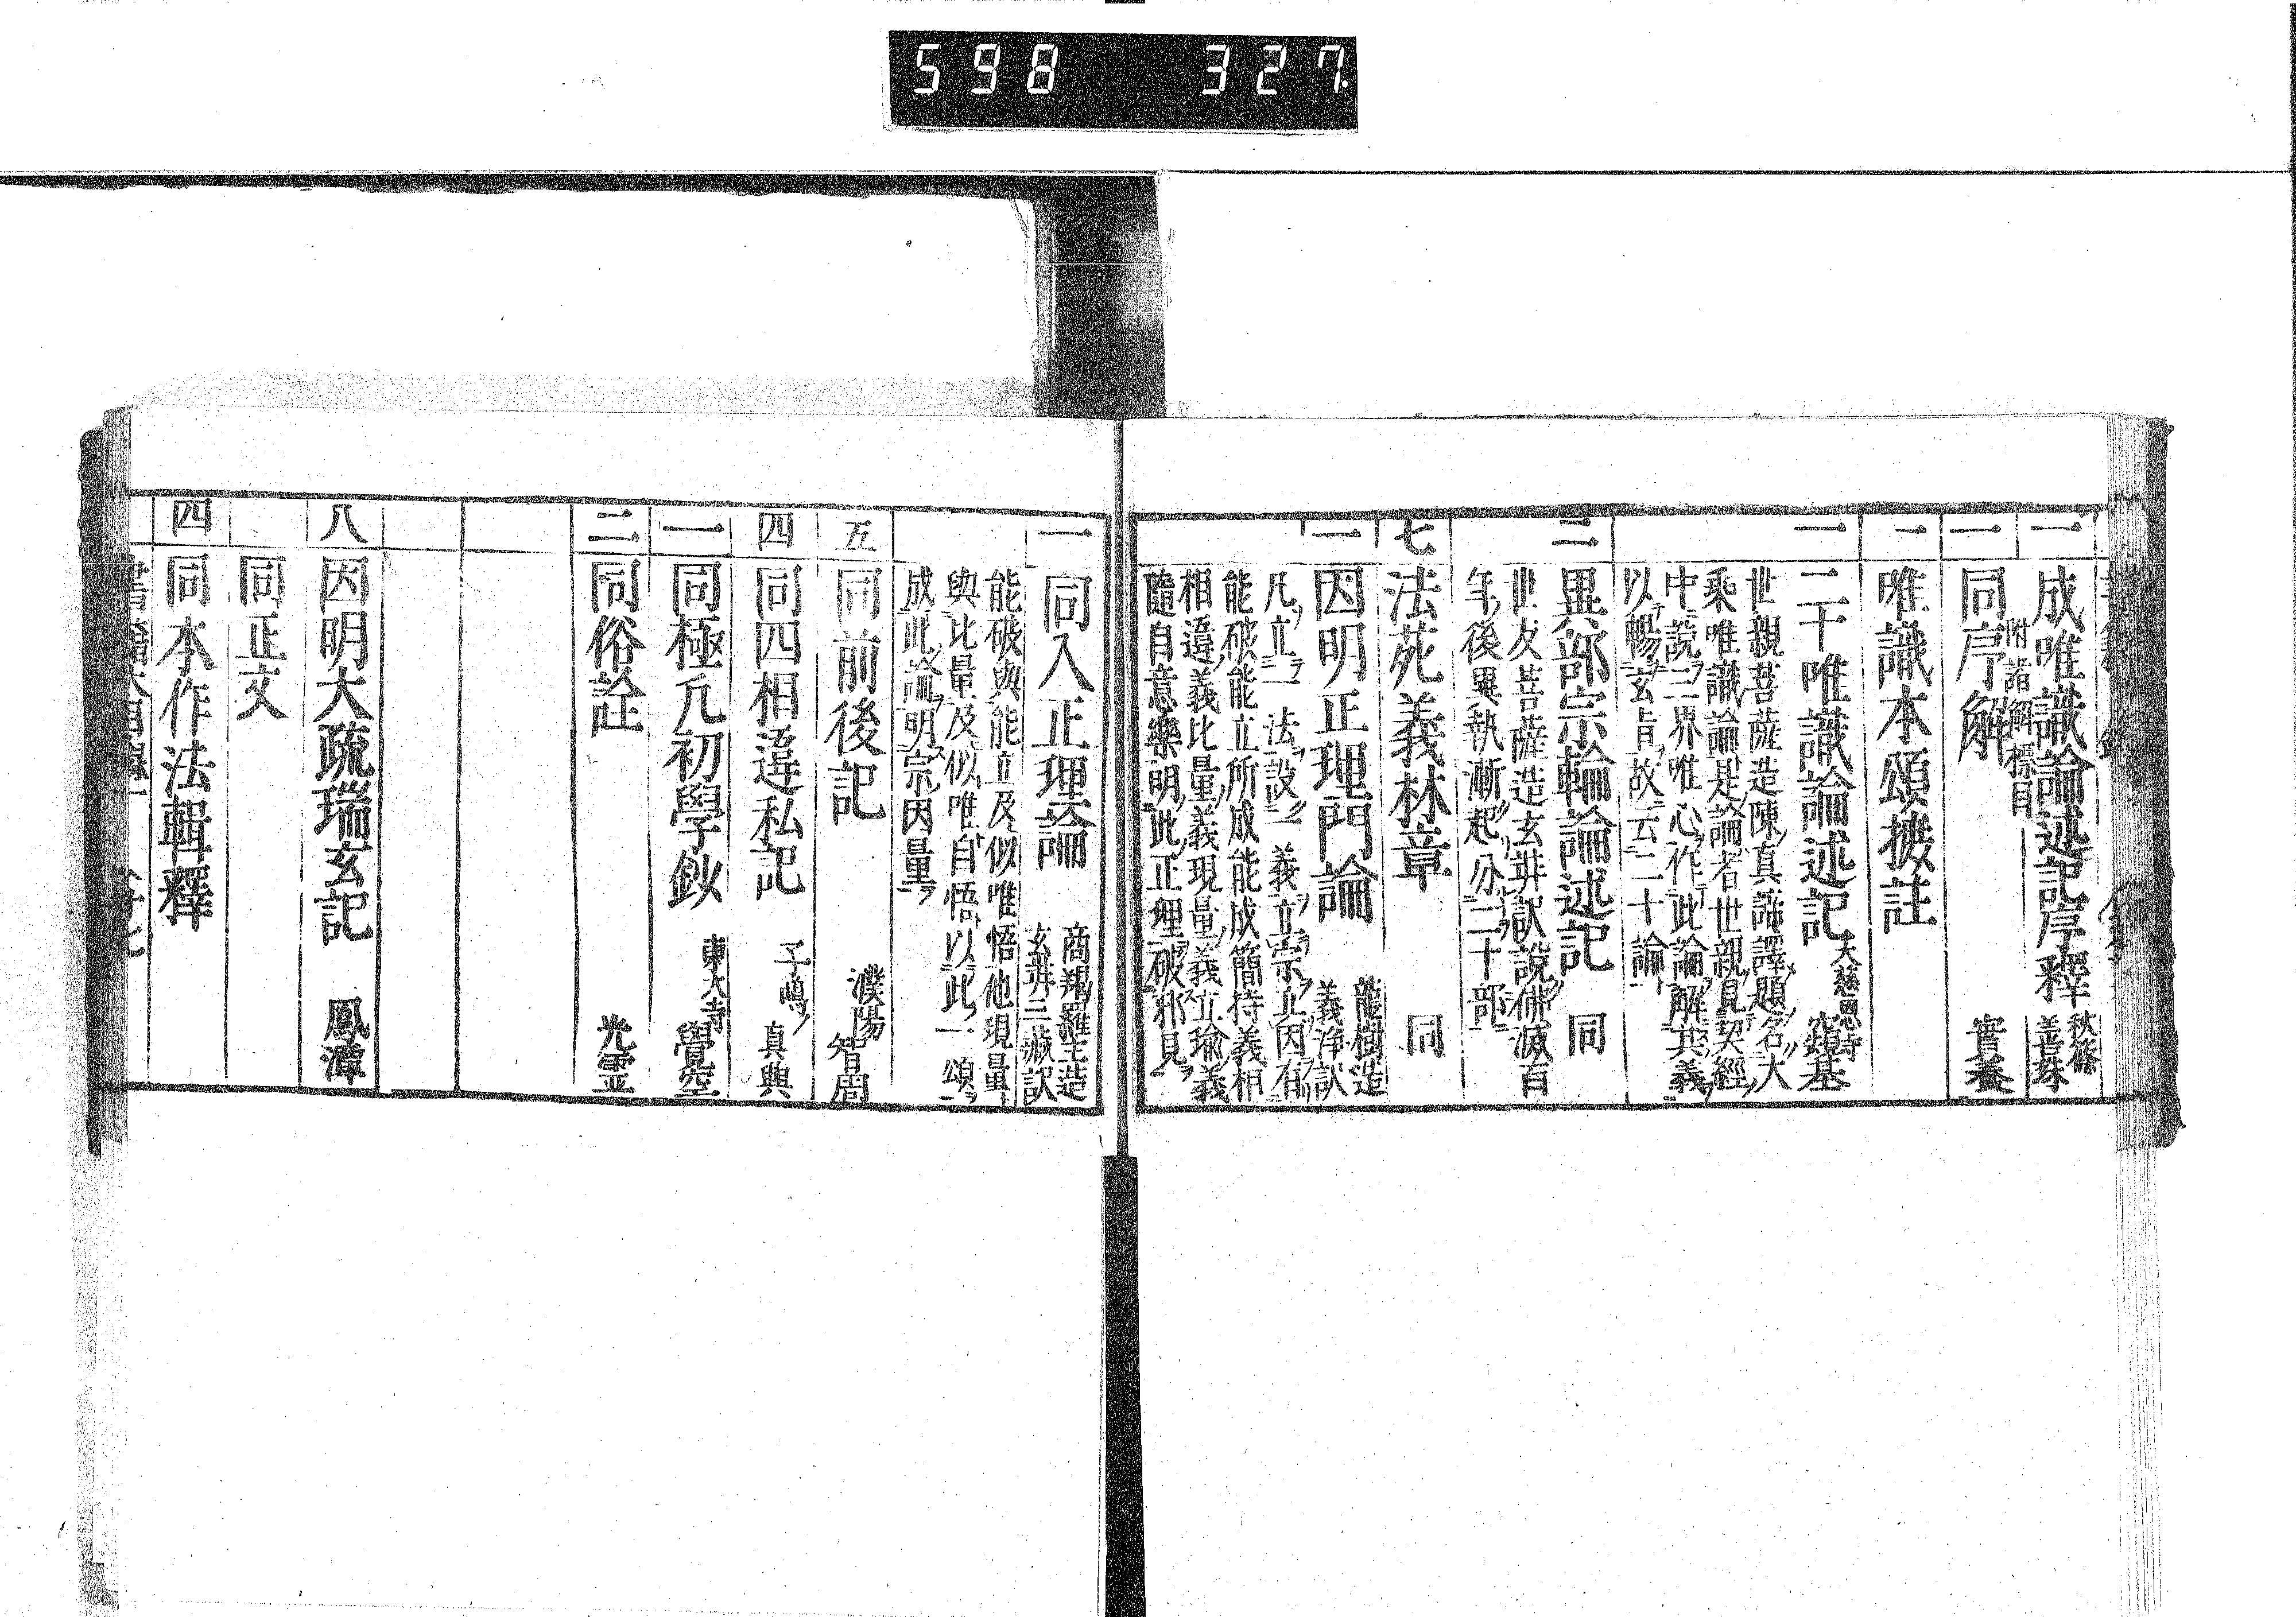 598 327
一 成唯識論述記序釋 秋篠 善珠
附諸解標目
一 同序解 實養
一 唯識本頌捗註
一 二十唯識論述記 大慈恩寺 窺基
世親菩薩造陳真諦譯題名大
乘唯識論是論者世親見契經
中說三界唯心作此論解其義
以暢玄旨故云二十論
三 異部宗輪論述記 同
世友菩薩造玄奘訳説佛滅百
年後異執漸起分二十部
七 法苑義林章 同
一 因明正理門論 龍樹造 義淨訳
凡立一法設一義立宗北因有
能破能立所成能成簡持義相
相違義比量義現量義立瑜義
隨自意樂明此正理破邪見
一 同入正理論 商羯羅主造 玄奘三藏訳
能破與能立及似唯悟他現量
與比量及似唯自悟以此一頌
成此論明宗因量
五 同前後記 濮陽 智周
四 同四相違私記 子嶋 真興
一 同極凡初學鈔 東大寺 覺空
二 同俗詮 光霊
八 因明大疏瑞玄記 鳳潭
同正文
四 同本作法輯釋
書籍大目録一